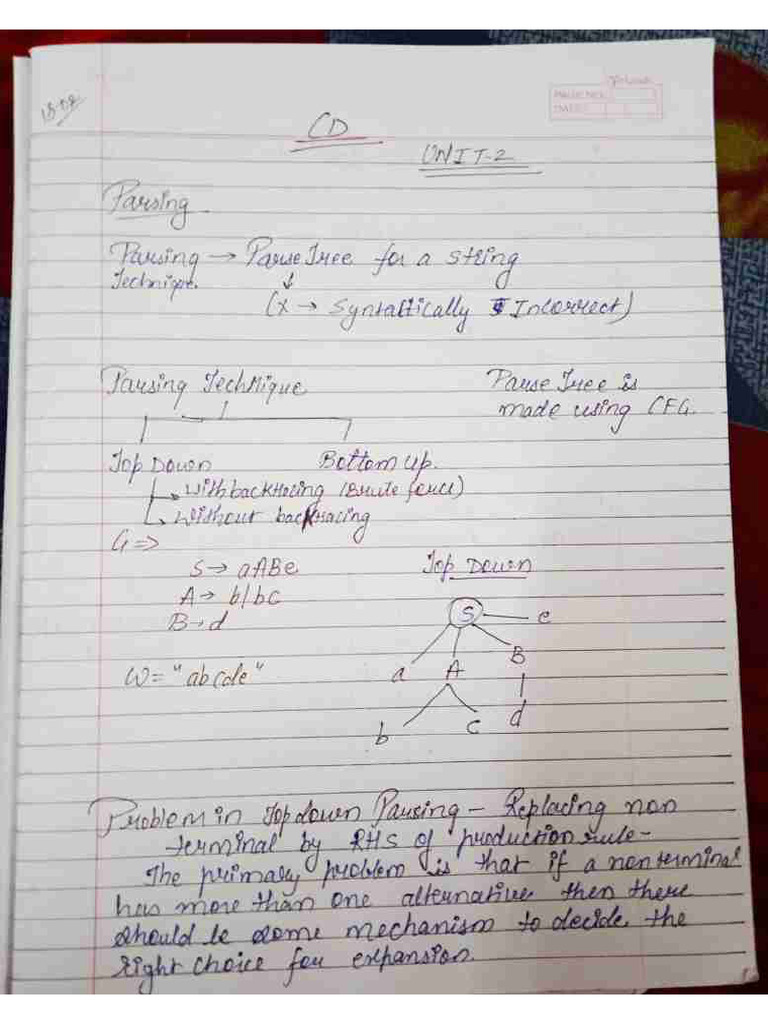 18-08
PAGE NO.
DATE
CD
UNIT-2
Parsing
Parsing → Parse Tree for a string
Technique.
(X → Syntatically Incorrect)
Parsing Technique
Parse Tree is
made using CFG.
Top Down
Bottom up.
→ With backtracing (Brute force)
→ Without backtracing
G ⇒
S → aABe
A → b/bc
B → d
W = "abcde"
Top Down
S e
a A B
b c d
Problem in Top down Parsing - Replacing non
terminal by RHS of production rule-
The primary problem is that if a non terminal
has more than one alternative then there
should be some mechanism to decide the
right choice for expansion.